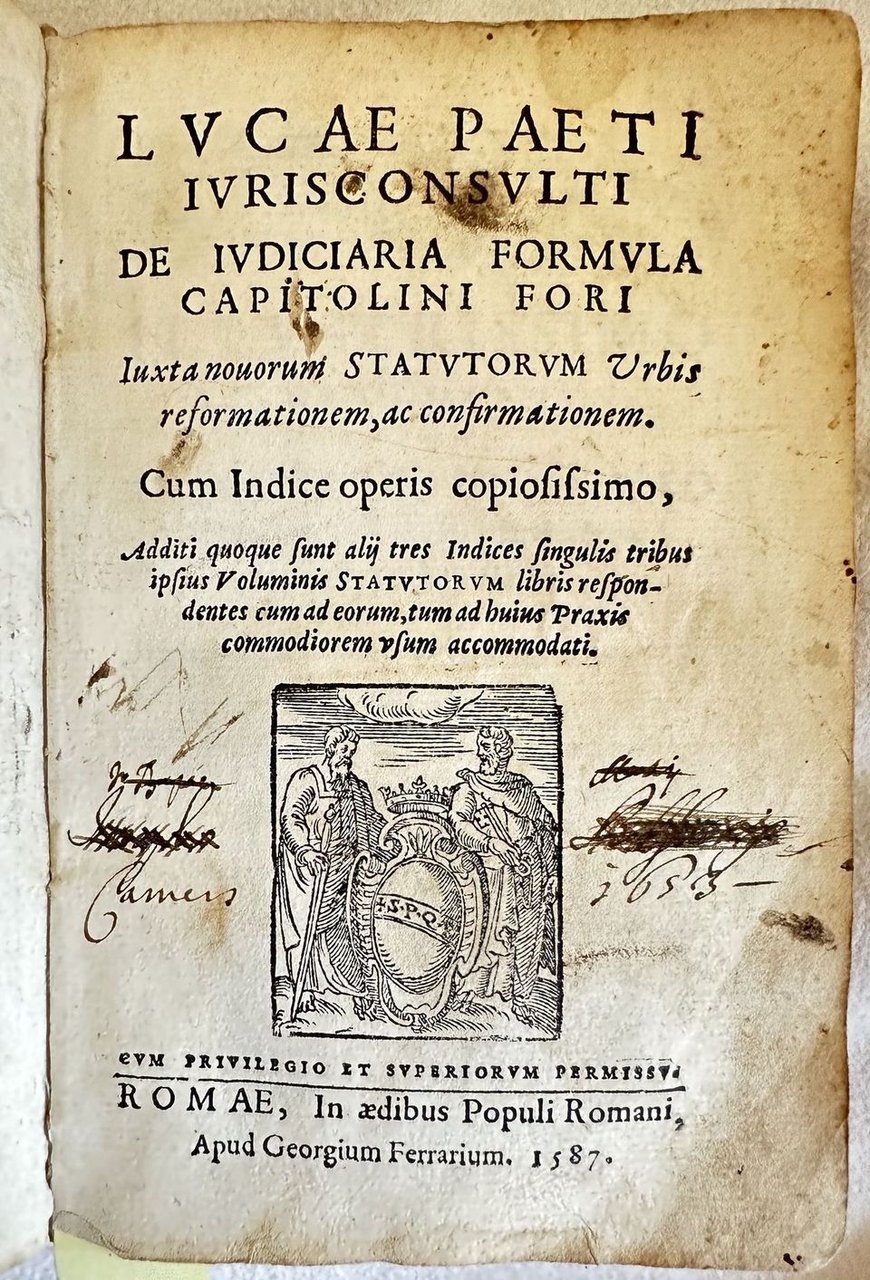 LVCAE PAETI
IVRISCONSVLTI
DE IVDICIARIA FORMVLA
CAPITOLINI FORI
Iuxta nouorum STATVTORVM Vrbis
reformationem, ac confirmationem.
Cum Indice operis copioſiſsimo,
Additi quoque ſunt alij tres Indices ſingulis tribus
ipſius Voluminis STATVTORVM libris reſpon-
dentes cum ad eorum, tum ad huius Praxis
commodiorem vſum accommodati.
Camers
1653-
+S·P·Q·
CVM PRIVILEGIO ET SVPERIORVM PERMISSV.
ROMAE, In ædibus Populi Romani,
Apud Georgium Ferrarium. 1587.